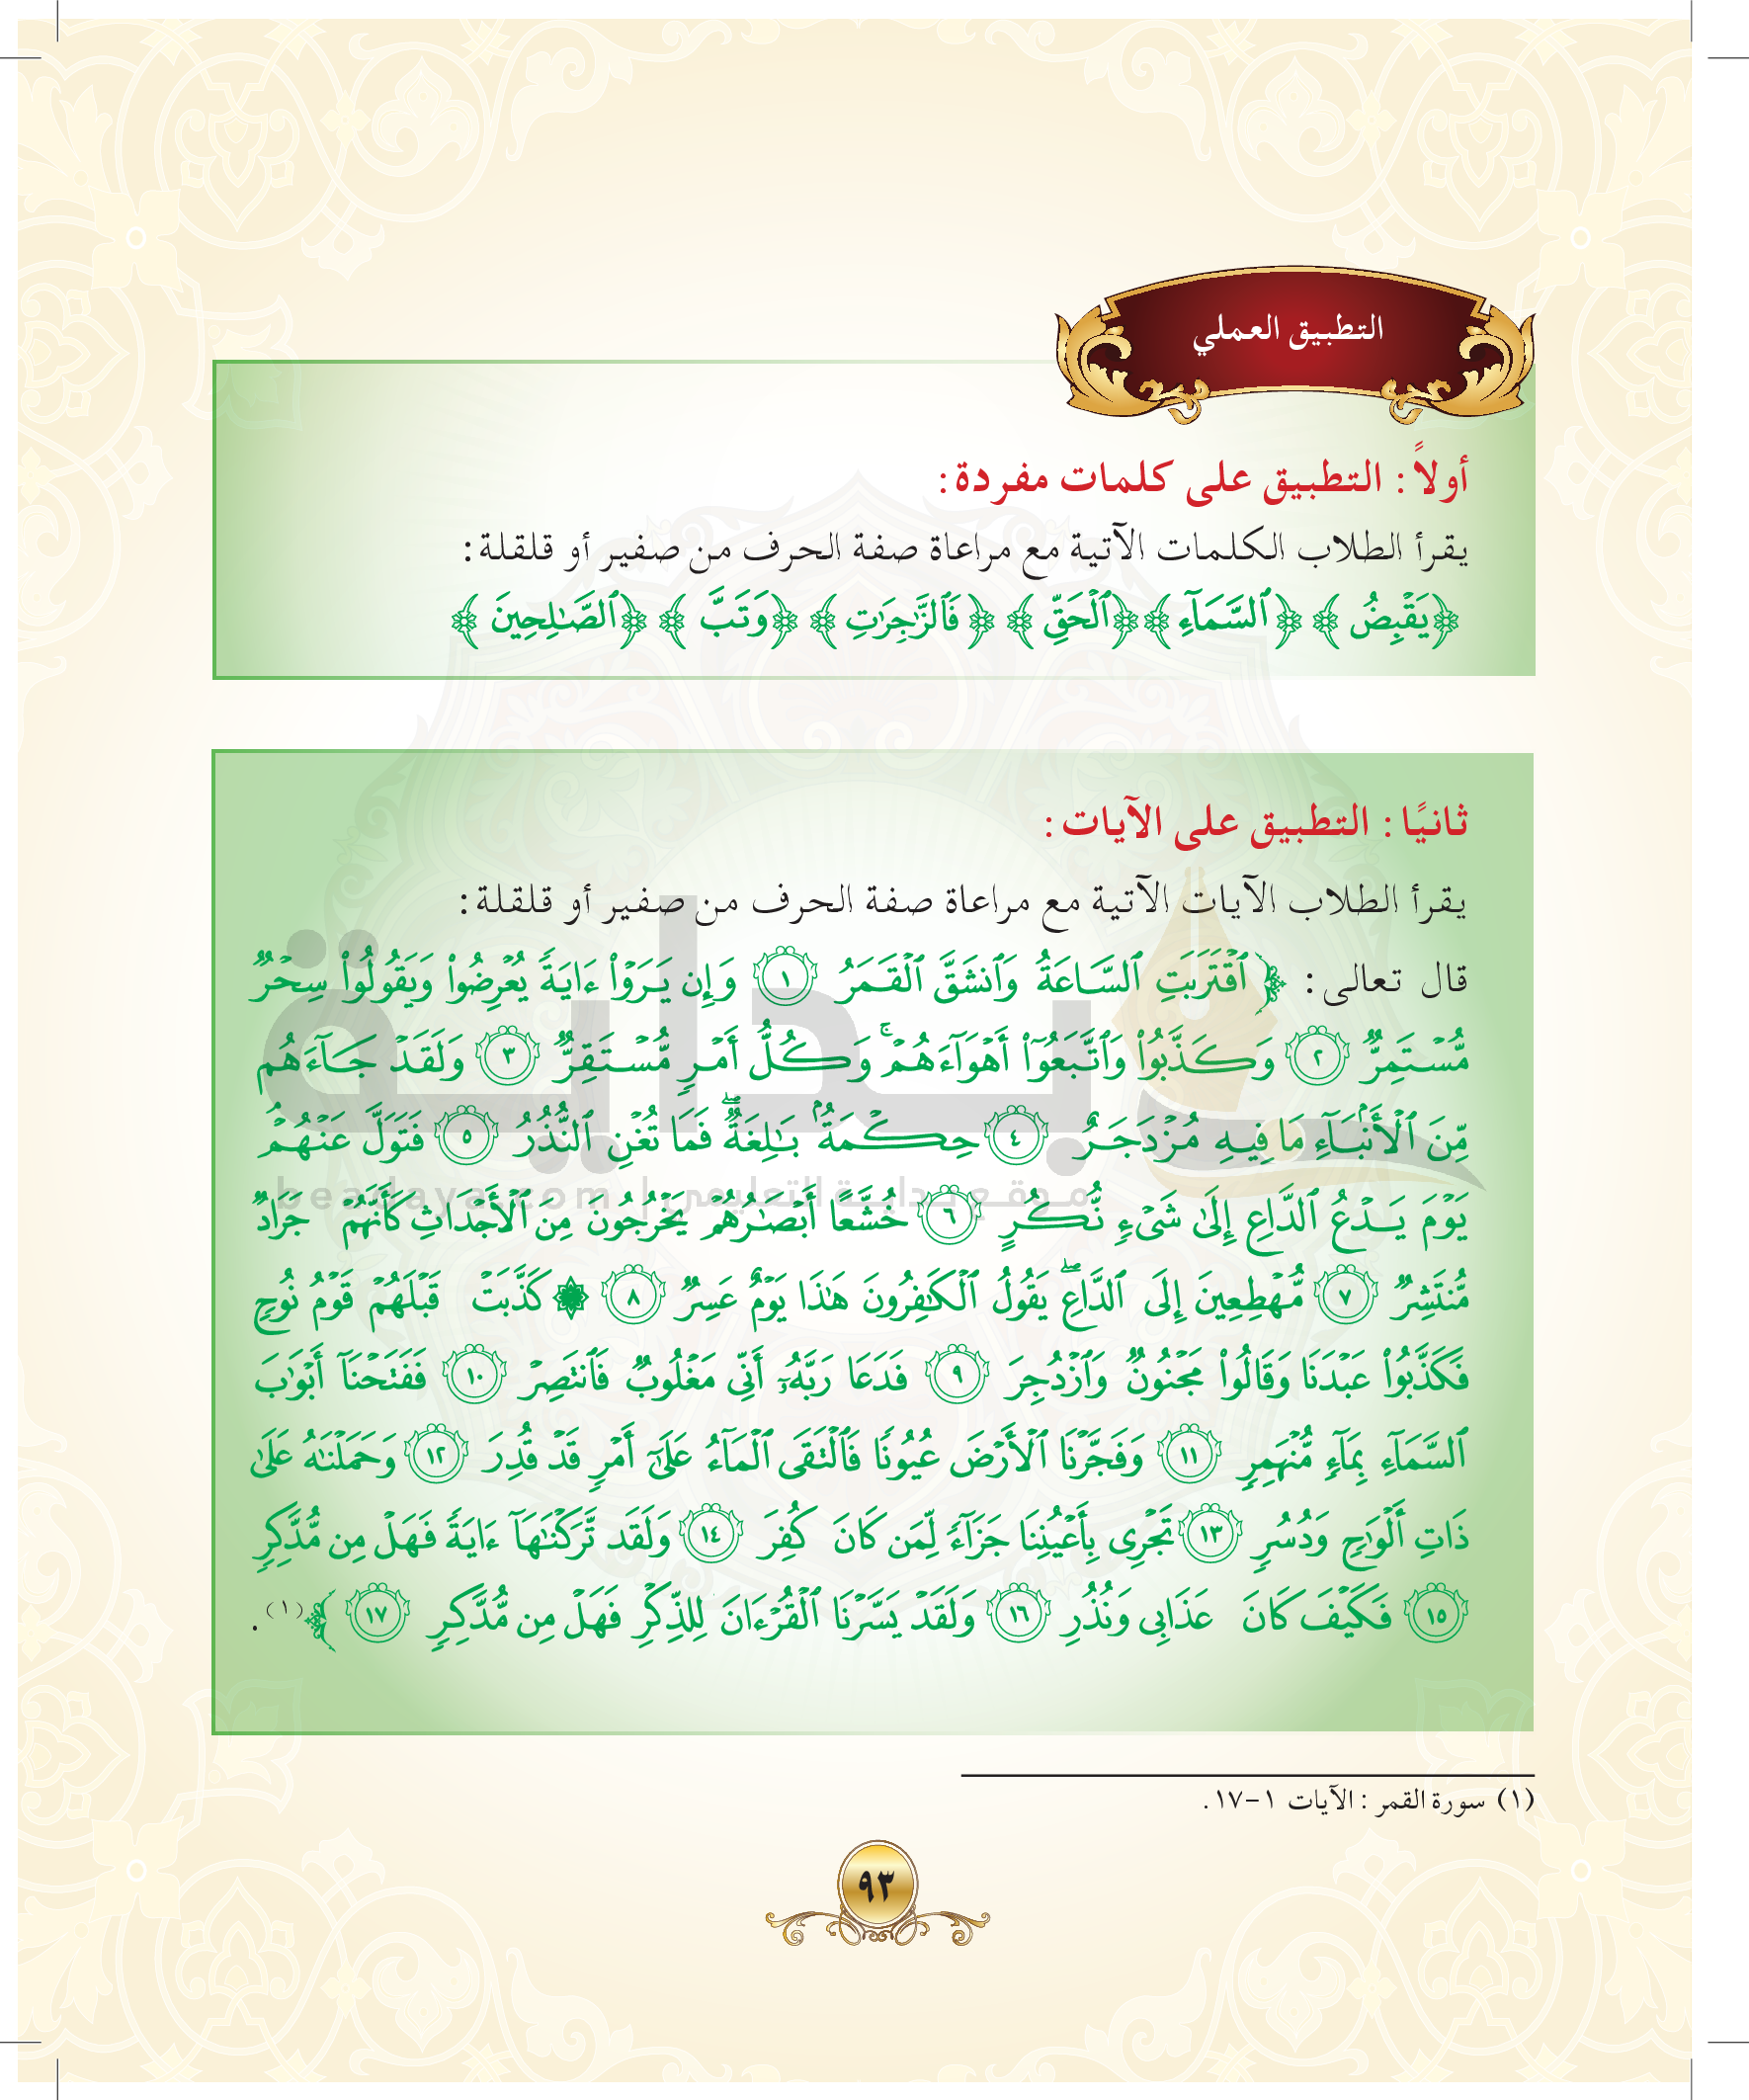 التطبيق العملي
أولاً: التطبيق على كلمات مفردة:
يقرأ الطلاب الكلمات الآتية مع مراعاة صفة الحرف من صفير أو قلقلة:
﴿يَقۡبِضُ﴾ ﴿ٱلسَّمَآءِ﴾ ﴿ٱلۡحَقِّ﴾ ﴿فَٱلزَّٰجِرَٰتِ﴾ ﴿وَتَبَّ﴾ ﴿ٱلصَّٰلِحِينَ﴾
ثانيًا: التطبيق على الآيات:
يقرأ الطلاب الآيات الآتية مع مراعاة صفة الحرف من صفير أو قلقلة:
قال تعالى: ﴿ٱقۡتَرَبَتِ ٱلسَّاعَةُ وَٱنشَقَّ ٱلۡقَمَرُ ١ وَإِن يَرَوۡاْ ءَايَةٗ يُعۡرِضُواْ وَيَقُولُواْ سِحۡرٞ
مُّسۡتَمِرّٞ ٢ وَكَذَّبُواْ وَٱتَّبَعُوٓاْ أَهۡوَآءَهُمۡۚ وَكُلُّ أَمۡرٖ مُّسۡتَقِرّٞ ٣ وَلَقَدۡ جَآءَهُم
مِّنَ ٱلۡأَنۢبَآءِ مَا فِيهِ مُزۡدَجَرٌ ٤ حِكۡمَةُۢ بَٰلِغَةٞۖ فَمَا تُغۡنِ ٱلنُّذُرُ ٥ فَتَوَلَّ عَنۡهُمۡۘ
يَوۡمَ يَدۡعُ ٱلدَّاعِ إِلَىٰ شَيۡءٖ نُّكُرٍ ٦ خُشَّعًا أَبۡصَٰرُهُمۡ يَخۡرُجُونَ مِنَ ٱلۡأَجۡدَاثِ كَأَنَّهُمۡ جَرَادٞ
مُّنتَشِرٞ ٧ مُّهۡطِعِينَ إِلَى ٱلدَّاعِۖ يَقُولُ ٱلۡكَٰفِرُونَ هَٰذَا يَوۡمٌ عَسِرٞ ٨ ۞ كَذَّبَتۡ قَبۡلَهُمۡ قَوۡمُ نُوحٖ
فَكَذَّبُواْ عَبۡدَنَا وَقَالُواْ مَجۡنُونٞ وَٱزۡدُجِرَ ٩ فَدَعَا رَبَّهُۥٓ أَنِّي مَغۡلُوبٞ فَٱنتَصِرۡ ١٠ فَفَتَحۡنَآ أَبۡوَٰبَ
ٱلسَّمَآءِ بِمَآءٖ مُّنۡهَمِرٖ ١١ وَفَجَّرۡنَا ٱلۡأَرۡضَ عُيُونٗا فَٱلۡتَقَى ٱلۡمَآءُ عَلَىٰٓ أَمۡرٖ قَدۡ قُدِرَ ١٢ وَحَمَلۡنَٰهُ عَلَىٰ
ذَاتِ أَلۡوَٰحٖ وَدُسُرٖ ١٣ تَجۡرِي بِأَعۡيُنِنَا جَزَآءٗ لِّمَن كَانَ كُفِرَ ١٤ وَلَقَد تَّرَكۡنَٰهَآ ءَايَةٗ فَهَلۡ مِن مُّدَّكِرٖ
١٥ فَكَيۡفَ كَانَ عَذَابِي وَنُذُرِ ١٦ وَلَقَدۡ يَسَّرۡنَا ٱلۡقُرۡءَانَ لِلذِّكۡرِ فَهَلۡ مِن مُّدَّكِرٖ ١٧﴾(١).
بداية
موقع بداية التعليمي | beadaya.com
(١) سورة القمر: الآيات ١-١٧.
٩٣